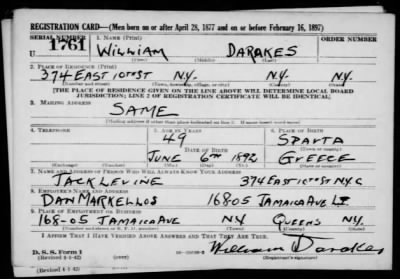 REGISTRATION CARD—(Men born on or after April 28, 1877 and on or before February 16, 1897)
SERIAL NUMBER 1. NAME (Print) ORDER NUMBER
U 1761 WILLIAM DARAKES
(First) (Middle) (Last)
2. PLACE OF RESIDENCE (Print)
374 EAST 10TH ST N.Y. N.Y.
(Number and street) (Town, township, village, or city) (County) (State)
[THE PLACE OF RESIDENCE GIVEN ON THE LINE ABOVE WILL DETERMINE LOCAL BOARD
JURISDICTION; LINE 2 OF REGISTRATION CERTIFICATE WILL BE IDENTICAL]
3. MAILING ADDRESS
SAME
(Mailing address if other than place indicated on line 2. If same insert word same)
4. TELEPHONE 5. AGE IN YEARS 6. PLACE OF BIRTH
49 SPARTA
DATE OF BIRTH (Town or county)
JUNE 6TH 1892 GREECE
(Exchange) (Number) (Mo.) (Day) (Yr.) (State or country)
7. NAME AND ADDRESS OF PERSON WHO WILL ALWAYS KNOW YOUR ADDRESS
JACK LEVINE 374 EAST 10TH ST N.Y.C
8. EMPLOYER'S NAME AND ADDRESS
DAN MARKELLOS 16805 JAMAICA AVE
9. PLACE OF EMPLOYMENT OR BUSINESS
168-05 JAMAICA AVE NY QUEENS N.Y.
(Number and street or R. F. D. number) (Town) (County) (State)
I AFFIRM THAT I HAVE VERIFIED ABOVE ANSWERS AND THAT THEY ARE TRUE.
D. S. S. Form 1 William Darakes
(Revised 4-1-42) (Registrant's signature)